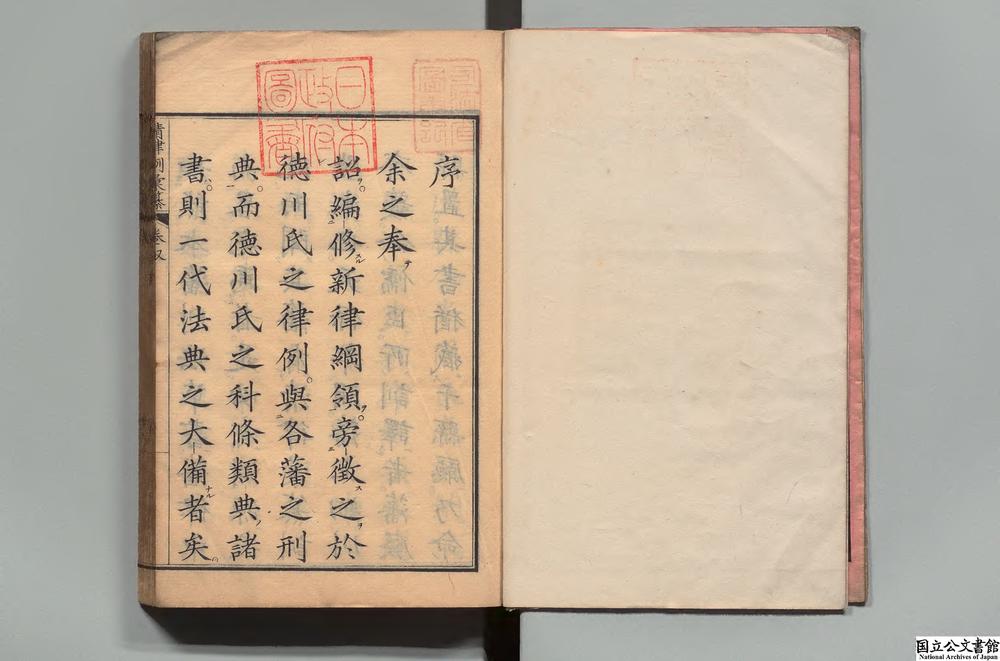 序
余之奉
詔編修新律綱領旁徵之於
德川氏之律例與各藩之刑
典而德川氏之科條類典諸
書則一代法典之大備者矣
清律例彙纂
日本
政府
圖書
国立公文書館
National Archives of Japan